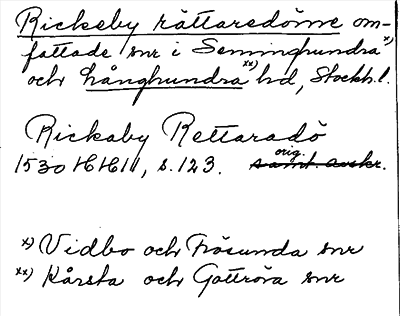 Rickeby rättaredöme om-
fattade snr i Seminghundra x)
och Långhundra xx) hd, Stockh.l.
Rickaby Rettaradö
1530 HH 11, s. 123. orig. samt. avskr.
x) Vidbo och Frösunda snr
xx) Kårsta och Gottröra snr